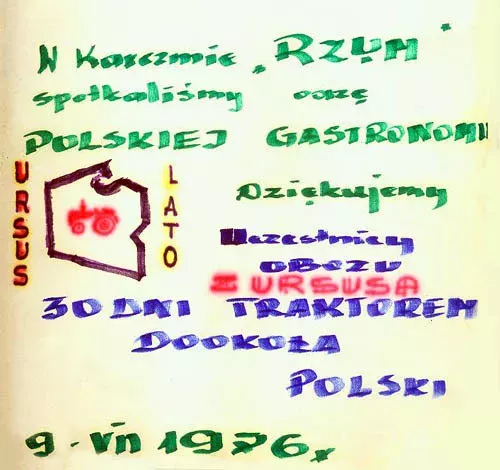 W Karczmie „RZYM"
spotkaliśmy oazę
POLSKIEJ GASTRONOMII
URSUS
LATO
Dziękujemy
Uczestnicy
OBOZU
Z URSUSA
30 DNI TRAKTOREM
DOOKOŁA
POLSKI
9. VII 1976r